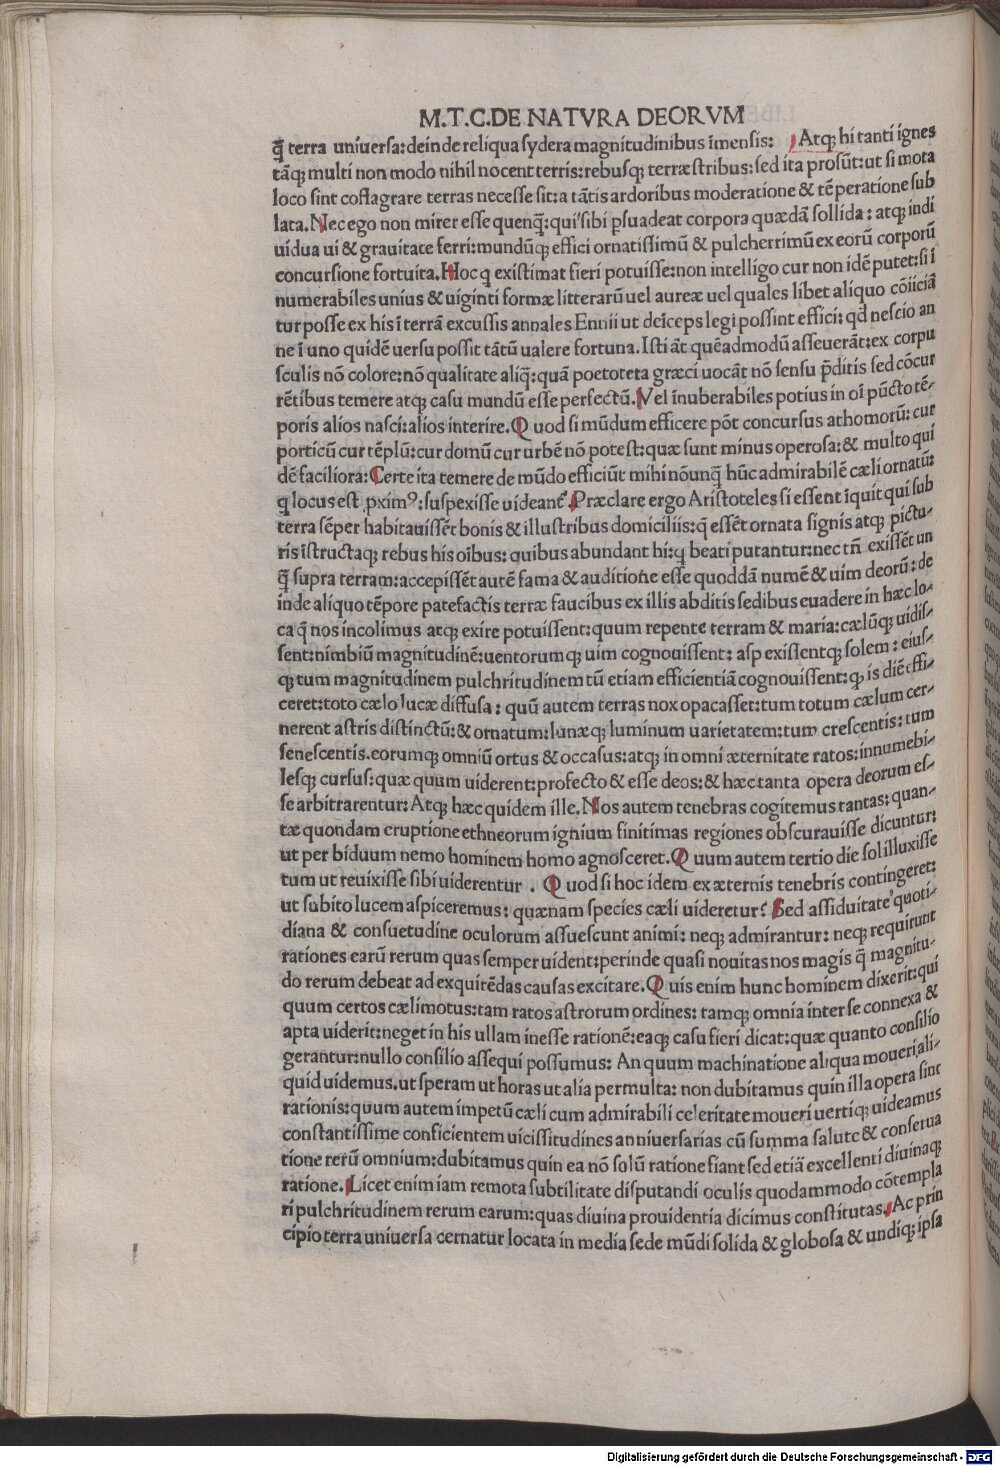 M.T.C.DE NATVRA DEORVM
q̃ terra uniuersa:deinde reliqua sydera magnitudinibus īmensis: Atq; hi tanti ignes
tāq; multi non modo nihil nocent terris:rebusq; terræstribus:sed ita prosūt:ut si mota
loco sint cōflagrare terras necesse sit:a tātis ardoribus moderatione & tēperatione sub
lata.Nec ego non mirer esse quenq̃:qui sibi ꝑsuadeat corpora quædā sollida: atq; indi
uidua ui & grauitate ferri:mundūq; effici ornatissimū & pulcherrimū ex eorū corporū
concursione fortuita.Hoc q existimat fieri potuisse:non intelligo cur non idē putet:si ī
numerabiles unius & uiginti formæ litterarū uel aureæ uel quales libet aliquo cōiiciā
tur posse ex his ī terrā excussis annales Ennii ut deīceps legi possint effici: qd nescio an
ne ī uno quidē uersu possit tātū ualere fortuna.Isti āt quēadmodū asseuerāt:ex corpu
sculis nō colore:nō qualitate aliq̃:quā poetoteta græci uocāt nō sensu p̄ditis sed cōcur
rētibus temere atq; casu mundū esse perfectū.Vel īnuberabiles potius in oī pūcto tē-
poris alios nasci:alios interire.Quod si mūdum efficere pōt concursus athomorū: cur
porticū cur tēplū:cur domū cur urbē nō potest:quæ sunt minus operosa:& multo qui
dē faciliora:Certe ita temere de mūdo efficiūt mihi nōunq̃ hūc admirabilē cæli ornatū:
q locus est ꝓximꝰ:suspexisse uideant᷑.Præclare ergo Aristoteles si essent īquit qui sub
terra sēper habitauissēt bonis & illustribus domiciliis:q̃ essēt ornata signis atq; pictu-
ris īstructaq; rebus his oībus: quibus abundant hi:q beati putantur:nec tñ exissēt un
q̃ supra terram:accepissēt autē fama & auditione esse quoddā numē & uim deorū: de
inde aliquo tēpore patefactis terræ faucibus ex illis abditis sedibus euadere in hæc lo-
ca q̃ nos incolimus atq; exire potuissent:quum repente terram & maria:cælūq; uidis-
sent:nimbiū magnitudinē:uentorumq; uim cognouissent: asp existentq; solem: eius-
q; tum magnitudinem pulchritudinem tū etiam efficientiā cognouissent:ꝙ is diē effi-
ceret:toto cælo lucæ diffusa: quū autem terras nox opacasset:tum totum cælum cer-
nerent astris distinctū:& ornatum:lunæq; luminum uarietatem:tum crescentis:tum
senescentis.eorumq; omniū ortus & occasus:atq; in omni æternitate ratos:innumebi-
lesq; cursus:quæ quum uiderent:profecto & esse deos:& hæc tanta opera deorum es-
se arbitrarentur:Atq; hæc quidem ille.Nos autem tenebras cogitemus tantas: quan-
tæ quondam eruptione ethneorum ignium finitimas regiones obscurauisse dicuntur:
ut per biduum nemo hominem homo agnosceret.Quum autem tertio die sol illuxisse
tum ut reuixisse sibi uiderentur . Quod si hoc idem ex æternis tenebris contingeret:
ut subito lucem aspiceremus: quænam species cæli uideretur? Sed assiduitate quoti-
diana & consuetudine oculorum assuescunt animi: neq; admirantur: neq; requirunt
rationes earū rerum quas semper uident:perinde quasi nouitas nos magis q̃ magnitu-
do rerum debeat ad exquirēdas causas excitare.Quis enim hunc hominem dixerit:qui
quum certos cæli motus:tam ratos astrorum ordines: tamq; omnia inter se connexa &
apta uiderit:neget in his ullam inesse rationē:eaq; casu fieri dicat:quæ quanto consilio
gerantur:nullo consilio assequi possumus: An quum machinatione aliqua moueri ali-
quid uidemus.ut speram ut horas ut alia permulta: non dubitamus quin illa opera sint
rationis:quum autem impetū cæli cum admirabili celeritate moueri uertiq; uideamus
constantissime conficientem uicissitudines anniuersarias cū summa salute & conserua
tione rerū omnium:dubitamus quin ea nō solū ratione fiant sed etiā excellenti diuinaq;
ratione.Licet enim iam remota subtilitate disputandi oculis quodammodo cōtempla
ri pulchritudinem rerum earum:quas diuina prouidentia dicimus constitutas.Ac prin
cipio terra uniuersa cernatur locata in media sede mūdi solida & globosa & undiq; ipsa
Digitalisierung gefördert durch die Deutsche Forschungsgemeinschaft - DFG